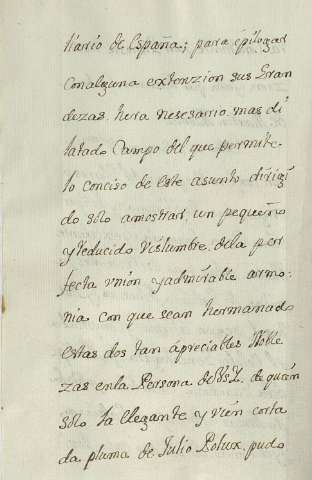 tiario de España; para epilogar
con alguna extenzion sus Gran
dezas, hera nesesario mas di
latado Campo del que permite
lo conciso de este asunto dirigi
do solo amostrar un pequeño
y reducido vislumbre dela per
fecta vnion y admirable armo-
nia con que sean hermanado
estas dos tan apreciables Noble
zas enla Persona de VsI. de quien
solo la ellegante y vien corta
da pluma de Julio Polux, pudo